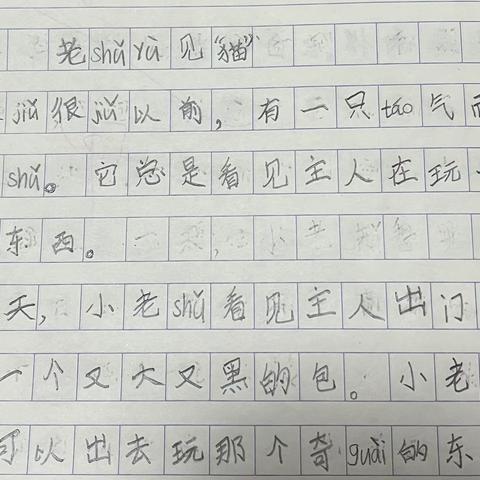 老shǔ yù见“猫”
jiǔ很jiǔ以前，有一只táo气
shǔ。它总是看见主人在玩
东西。
天，小老shǔ看见主人出门
一个又大又黑的包。小老
可以出去玩那个奇guài的东